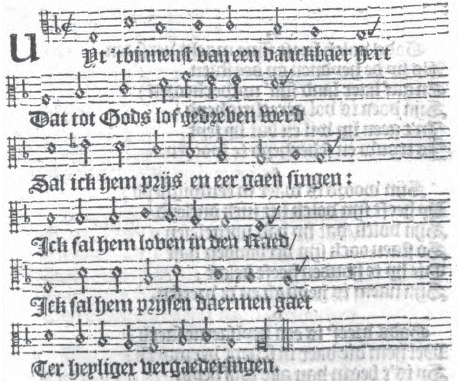 Uyt 'tbinnenst van een danckbaer hert
Dat tot Gods lof gedreven werd
Sal ick hem prijs en eer gaen singen:
Ick sal hem loven in den Raed/
Ick sal hem prijsen daermen gaet
Ter heyliger vergaederingen.